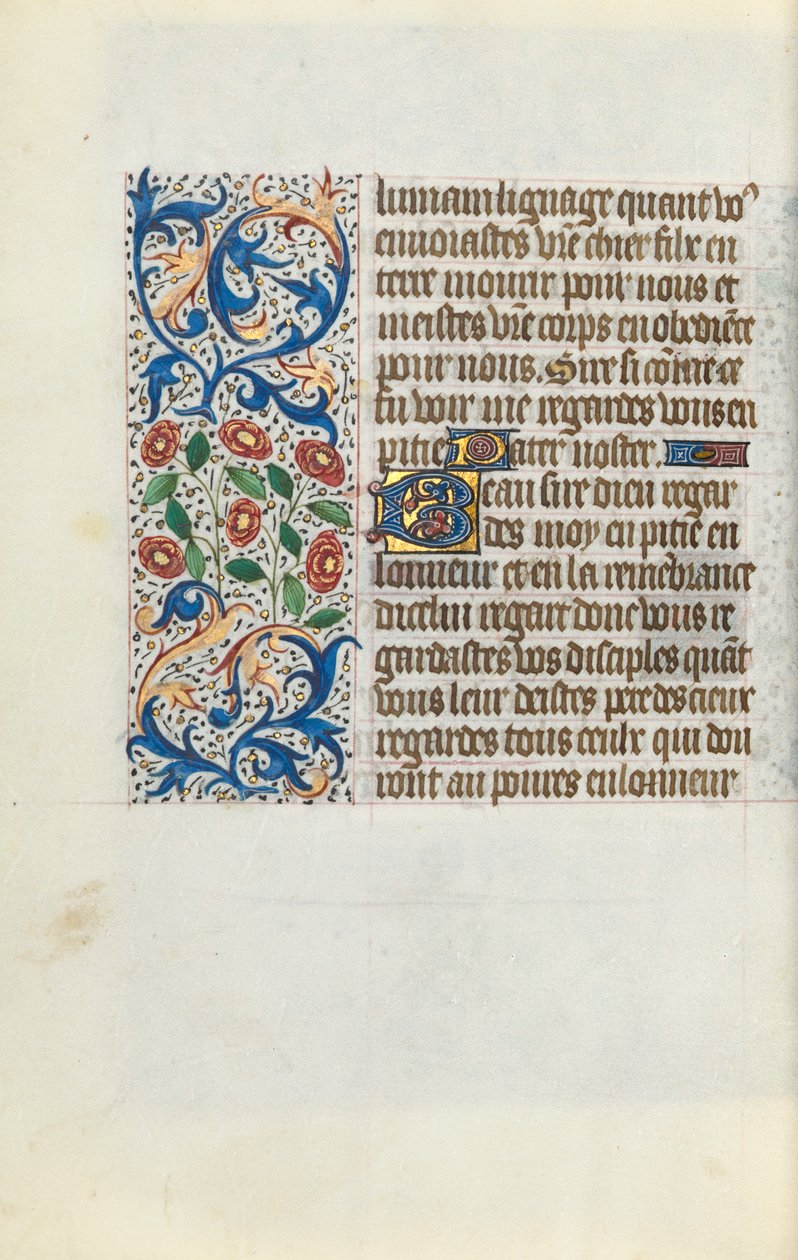 lumain lignage quant vo⁹
enuoiastes vr̄e chier filx en
terre mourir pour nous et
meistes vr̄e corps en obediēce
pour nous. Sire si cōme ce
fu voir me regardes vous en
pitie Pater noster.
Beau sire dieu regar
des moy en pitie en
lonneur et en la remēbrance
dicelui regart donc vous re
gardastes vos disciples quāt
vous leur deistes pere des cieux
regardes tous ceulx qui dou
ront au poures en lonneur